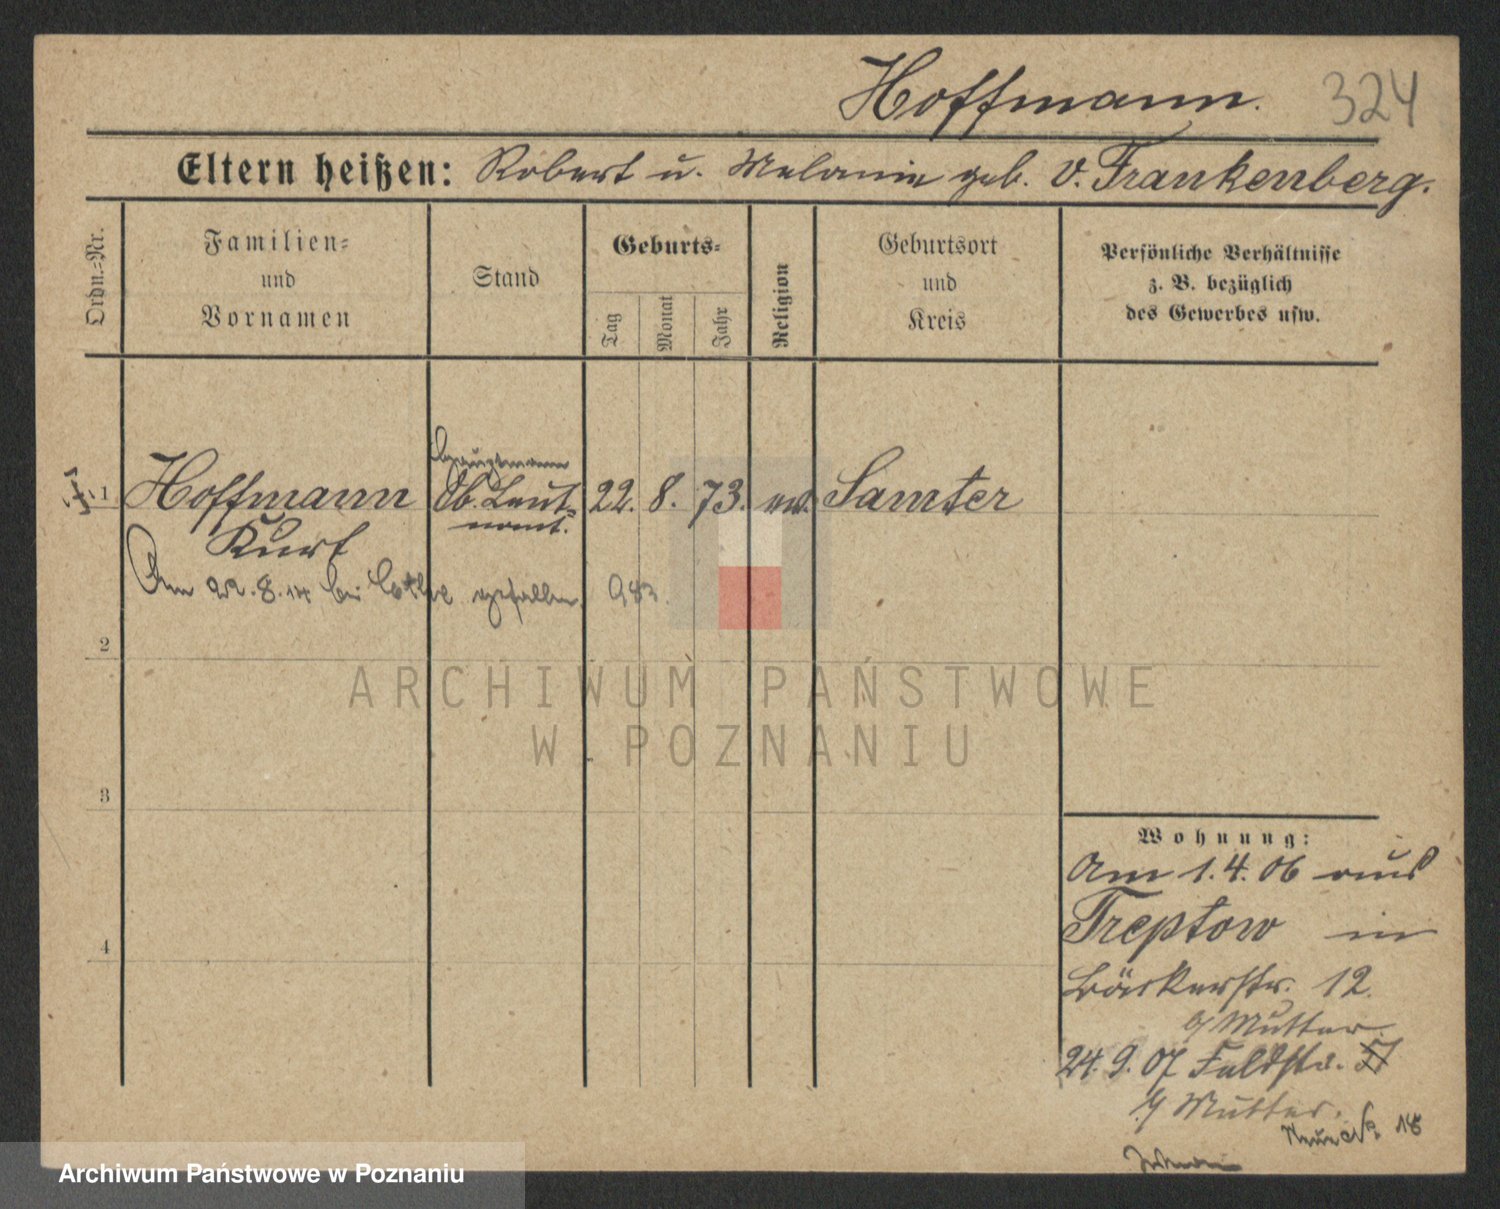 Hoffmann. 324
Eltern heißen: Robert u. Melanie geb. v. Frankenberg.
Ordn.-Nr.
Familien-
und
Vornamen
Stand
Geburts-
Tag
Monat
Jahr
Religion
Geburtsort
und
Kreis
Persönliche Verhältnisse
z. B. bezüglich
des Gewerbes usw.
Hauptmann
1 Hoffmann Ob. Leut- 22. 8. 73. ev. Samter
Kurt nant.
Am 22.8.14 bei gefallen.
2
ARCHIWUM PAŃSTWOWE
W POZNANIU
3
4
Wohnung:
Am 1.4.06 aus
Treptow in
Bäckerstr. 12.
b/ Mutter.
24.9.07 Feldstr.
b/ Mutter.
18
Archiwum Państwowe w Poznaniu